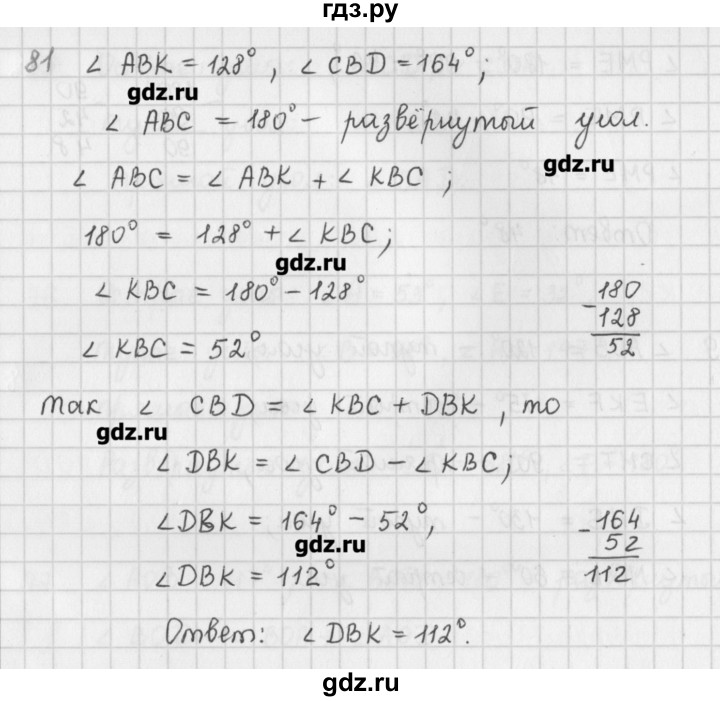 гдз.ру
81 ∠ ABK = 128°, ∠ CBD = 164°;
gdz.ru
∠ ABC = 180° – развёрнутый угол.
gdz.ru
∠ ABC = ∠ ABK + ∠ KBC ;
180° = 128° + ∠ KBC;
gdz.ru
∠ KBC = 180° – 128°
180
- 128
52
∠ KBC = 52°
так ∠ CBD = ∠ KBC + DBK , то
gdz.ru
∠ DBK = ∠ CBD – ∠ KBC;
∠ DBK = 164° – 52°,
164
- 52
112
gdz.ru
∠ DBK = 112°
Ответ: ∠ DBK = 112°.
gdz.ru